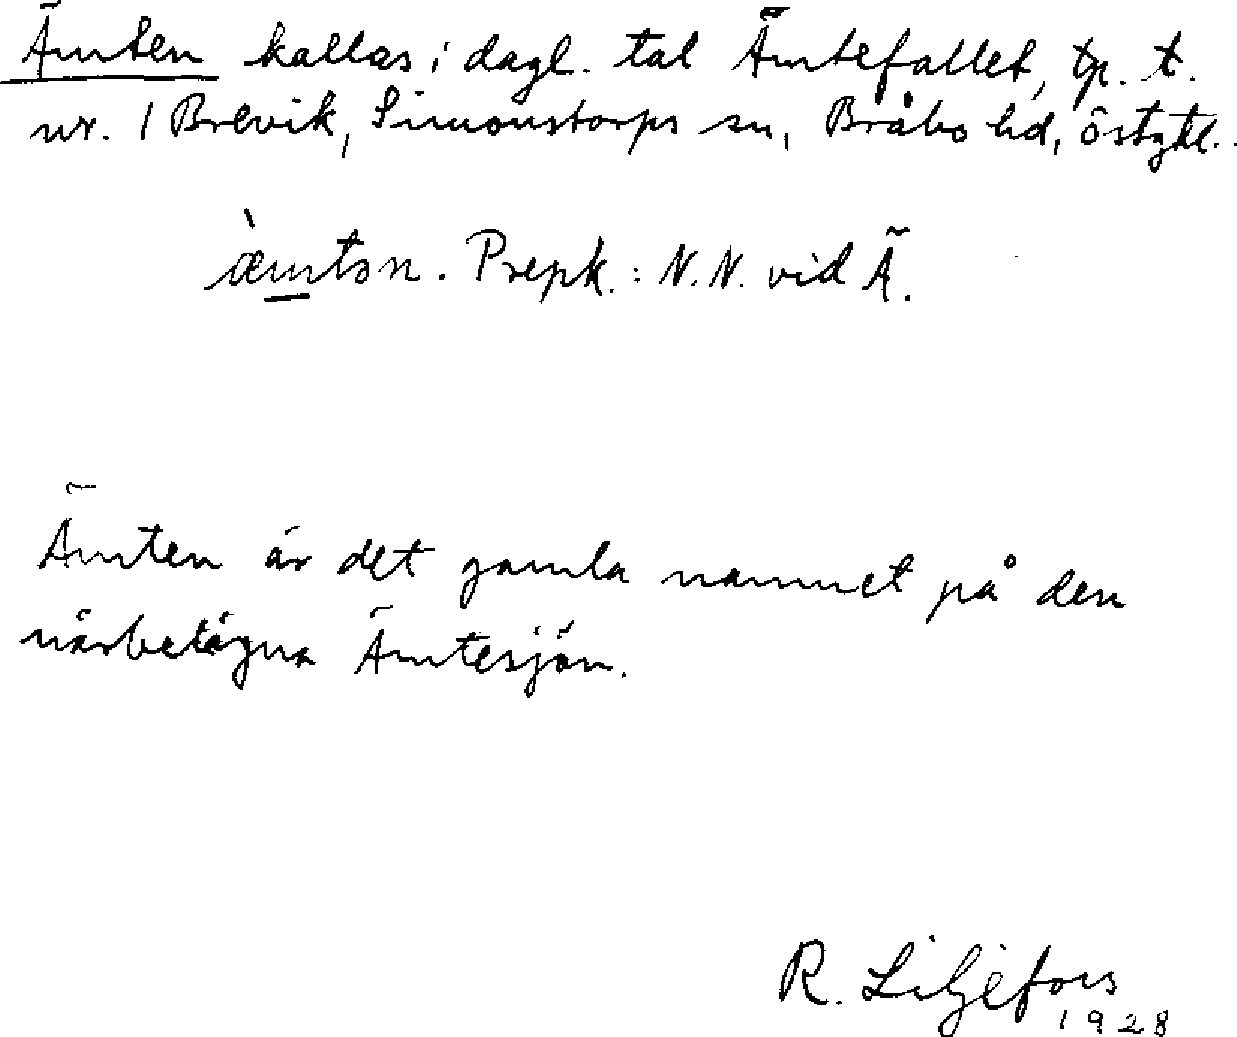 Ämten kallas i dagl. tal Ämtefallet, tp. t.
nr. 1 Brevik, Simonstorps sn, Bråbo hd, Östgtl.
æ̀mtən. Prepk.: N.N. vid Ä.
Ämten är det gamla namnet på den
närbelägna Ämtesjön.
R. Liljefors
1928